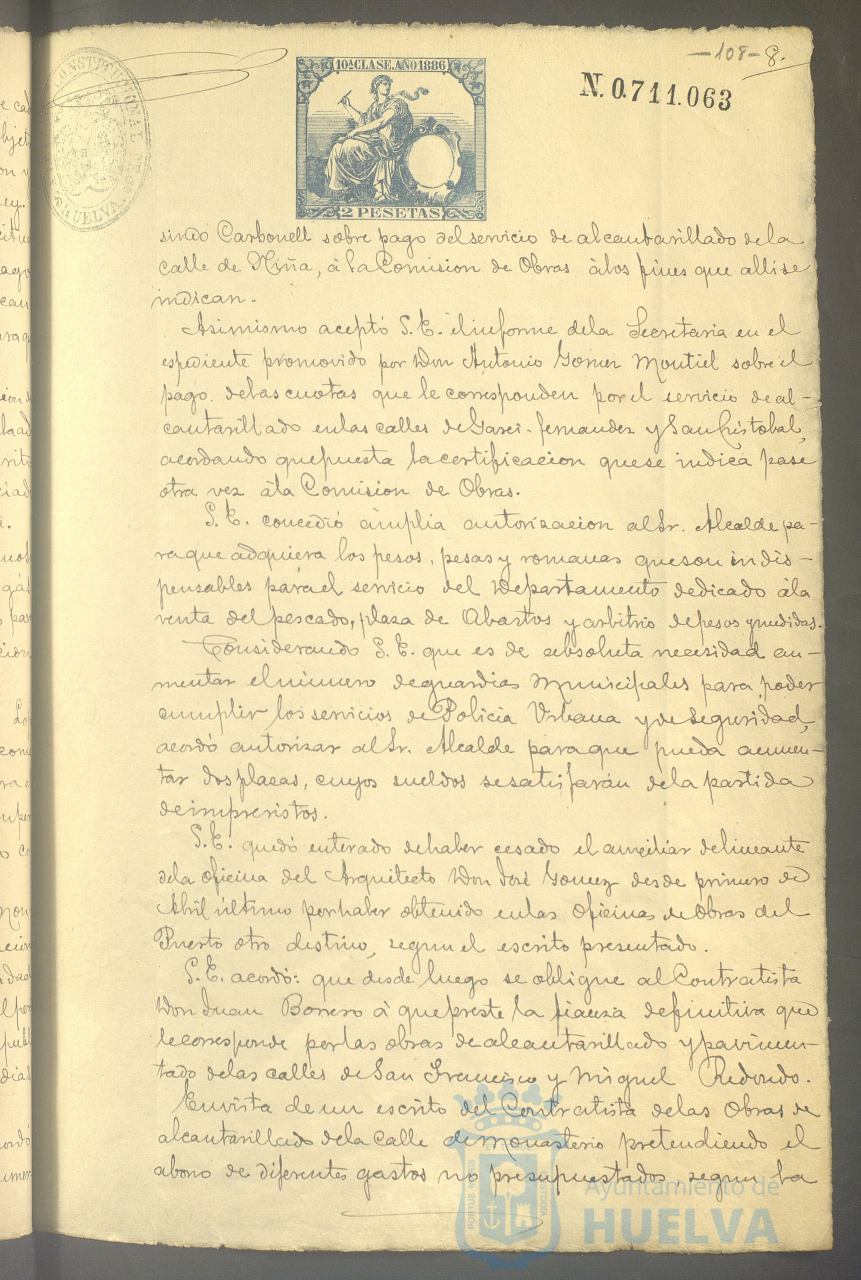 -108- 8.
10ª CLASE. AÑO 1886
2 PESETAS
N. 0.711.063
CONSTITUCIONAL DE
HUELVA
sindo Carbonell sobre pago del servicio de alcantarillado de la
calle de Niña, à la Comision de Obras à los fines que alli se
indican.
Asimismo aceptó S. E. el informe de la Secretaria en el
espediente promovido por Don Antonio Gomez Montiel sobre el
pago de las cuotas que le corresponden por el servicio de al-
cantarillado en las calles de Garci-fernandez y San Cristobal,
acordando que puesta la certificacion que se indica pase
otra vez à la Comision de Obras.
S. E. concedió amplia autorizacion al Sr. Alcalde pa-
ra que adquiera los pesos, pesas y romanas que son indis-
pensables para el servicio del Departamento dedicado à la
venta del pescado, plaza de Abastos y arbitrio de pesos y medidas.
Considerando S. E. que es de absoluta necesidad au-
mentar el número de guardias Municipales para poder
cumplir los servicios de Policia Urbana y de seguridad,
acordó autorizar al Sr. Alcalde para que pueda aumen-
tar dos plazas, cuyos sueldos se satisfarán de la partida
de imprevistos.
S. E. quedó enterado de haber cesado el auxiliar delineante
de la oficina del Arquitecto Don José Gomez desde primero de
Abril último por haber obtenido en las oficinas de Obras del
Puerto otro destino, segun el escrito presentado.
S. E. acordó: que desde luego se obligue al Contratista
Don Juan Borrero à que preste la fianza definitiva que
le corresponde por las obras de alcantarillado y pavimen-
tado de las calles de San Francisco y Miguel Redondo.
En vista de un escrito del Contratista de las Obras de
alcantarillado de la calle de Monasterio pretendiendo el
abono de diferentes gastos no presupuestados, segun la
PORTUS MARIS
CUSTODIA
Ayuntamiento de
HUELVA